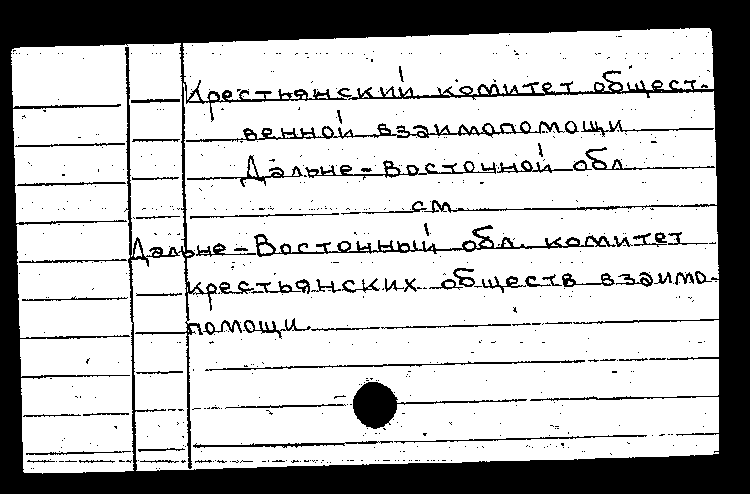 Крестьянский комитет общест-
венной взаимопомощи
Дальне-Восточной обл
см.
Дальне-Восточный обл. комитет
крестьянских обществ взаимо-
помощи.